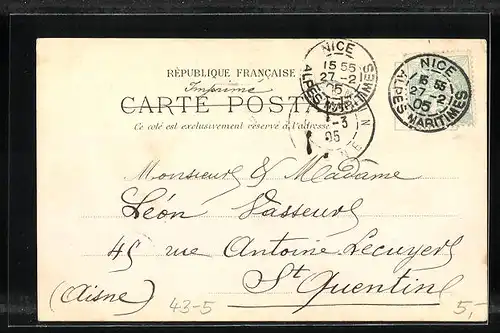 RÉPUBLIQUE FRANÇAISE
Imprimé
CARTE POSTALE
Ce coté est exclusivement réservé à l'adresse
NICE
15 55
27-2
05
ALPES MARITIMES
NICE
15 55
27-2
05
ALPES MARITIMES
1-3
05
Monsieur & Madame
Léon Vasseur
45 rue Antoine Lecuyer
St Quentin
(Aisne)
43-5
5,-